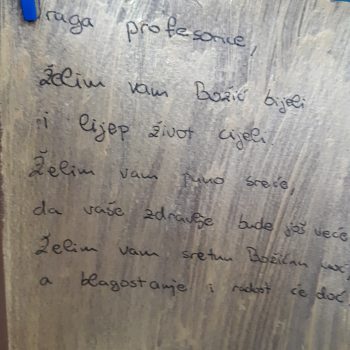 Draga profesorice,
Želim vam Božić bijeli
i lijep život cijeli.
Želim vam puno sreće,
da vaše zdravlje bude još veće
Želim vam sretnu Božićnu noć,
a blagostanje i radost će doć